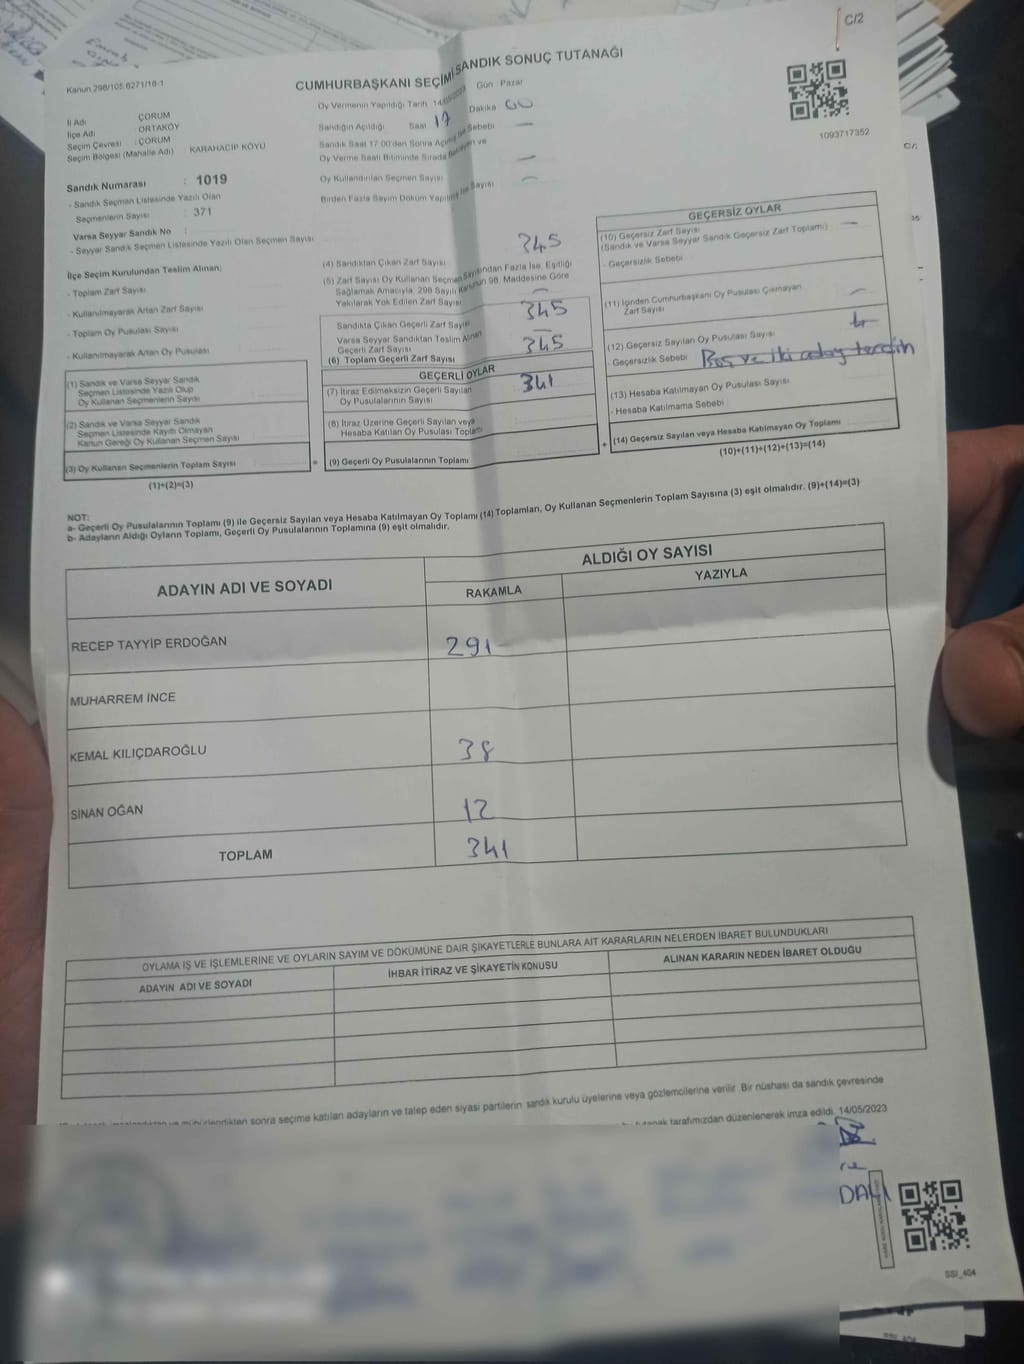 C/2
Kanun 298/105 6271/18-1
CUMHURBAŞKANI SEÇİMİ SANDIK SONUÇ TUTANAĞI
1093717352
İl Adı ÇORUM
İlçe Adı ORTAKÖY
Seçim Çevresi : ÇORUM
Seçim Bölgesi (Mahalle Adı) : KARAHACIP KÖYÜ
Sandık Numarası : 1019
- Sandık Seçmen Listesinde Yazılı Olan
Seçmenlerin Sayısı : 371
Varsa Seyyar Sandık No :
- Seyyar Sandık Seçmen Listesinde Yazılı Olan Seçmen Sayısı
İlçe Seçim Kurulundan Teslim Alınan;
- Toplam Zarf Sayısı
- Kullanılmayarak Artan Zarf Sayısı
- Toplam Oy Pusulası Sayısı
- Kullanılmayarak Artan Oy Pusulası
(1) Sandık ve Varsa Seyyar Sandık
Seçmen Listesinde Yazılı Olup
Oy Kullanan Seçmenlerin Sayısı
(2) Sandık ve Varsa Seyyar Sandık
Seçmen Listesinde Kayıtlı Olmayan
Kanun Gereği Oy Kullanan Seçmen Sayısı
(3) Oy Kullanan Seçmenlerin Toplam Sayısı
(1)+(2)=(3)
Oy Vermenin Yapıldığı Tarih 14/05/2023 Gün : Pazar
Sandığın Açıldığı Saat 17 Dakika 00
Sandık Saat 17.00'den Sonra Açılmış İse Sebebi —
Oy Verme Saati Bitiminde Sırada Bekleyen ve
Oy Kullandırılan Seçmen Sayısı —
Birden Fazla Sayım Döküm Yapılmış İse Sayısı —
(4) Sandıktan Çıkan Zarf Sayısı 345
(5) Zarf Sayısı Oy Kullanan Seçmen Sayısından Fazla İse, Eşitliği
Sağlamak Amacıyla, 298 Sayılı Kanunun 98. Maddesine Göre
Yakılarak Yok Edilen Zarf Sayısı —
Sandıkta Çıkan Geçerli Zarf Sayısı 345
Varsa Seyyar Sandıktan Teslim Alınan
Geçerli Zarf Sayısı —
(6) Toplam Geçerli Zarf Sayısı 345
GEÇERLİ OYLAR
(7) İtiraz Edilmeksizin Geçerli Sayılan
Oy Pusulalarının Sayısı 341
(8) İtiraz Üzerine Geçerli Sayılan veya
Hesaba Katılan Oy Pusulası Toplamı
= (9) Geçerli Oy Pusulalarının Toplamı
GEÇERSİZ OYLAR
(10) Geçersiz Zarf Sayısı —
(Sandık ve Varsa Seyyar Sandık Geçersiz Zarf Toplamı)
- Geçersizlik Sebebi
(11) İçinden Cumhurbaşkanı Oy Pusulası Çıkmayan
Zarf Sayısı —
(12) Geçersiz Sayılan Oy Pusulası Sayısı 4
- Geçersizlik Sebebi Boş ve iki aday tercih
(13) Hesaba Katılmayan Oy Pusulası Sayısı
- Hesaba Katılmama Sebebi
+ (14) Geçersiz Sayılan veya Hesaba Katılmayan Oy Toplamı
(10)+(11)+(12)+(13)=(14)
NOT:
a- Geçerli Oy Pusulalarının Toplamı (9) ile Geçersiz Sayılan veya Hesaba Katılmayan Oy Toplamı (14) Toplamları, Oy Kullanan Seçmenlerin Toplam Sayısına (3) eşit olmalıdır. (9)+(14)=(3)
b- Adayların Aldığı Oyların Toplamı, Geçerli Oy Pusulalarının Toplamına (9) eşit olmalıdır.
ADAYIN ADI VE SOYADI
ALDIĞI OY SAYISI
RAKAMLA YAZIYLA
RECEP TAYYİP ERDOĞAN 291
MUHARREM İNCE
KEMAL KILIÇDAROĞLU 38
SİNAN OĞAN 12
TOPLAM 341
OYLAMA İŞ VE İŞLEMLERİNE VE OYLARIN SAYIM VE DÖKÜMÜNE DAİR ŞİKAYETLERLE BUNLARA AİT KARARLARIN NELERDEN İBARET BULUNDUKLARI
ADAYIN ADI VE SOYADI İHBAR İTİRAZ VE ŞİKAYETİN KONUSU ALINAN KARARIN NEDEN İBARET OLDUĞU
sonra seçime katılan adayların ve talep eden siyasi partilerin sandık kurulu üyelerine veya gözlemcilerine verilir. Bir nüshası da sandık çevresinde
tutanak tarafımızdan düzenlenerek imza edildi. 14/05/2023
SSI_404